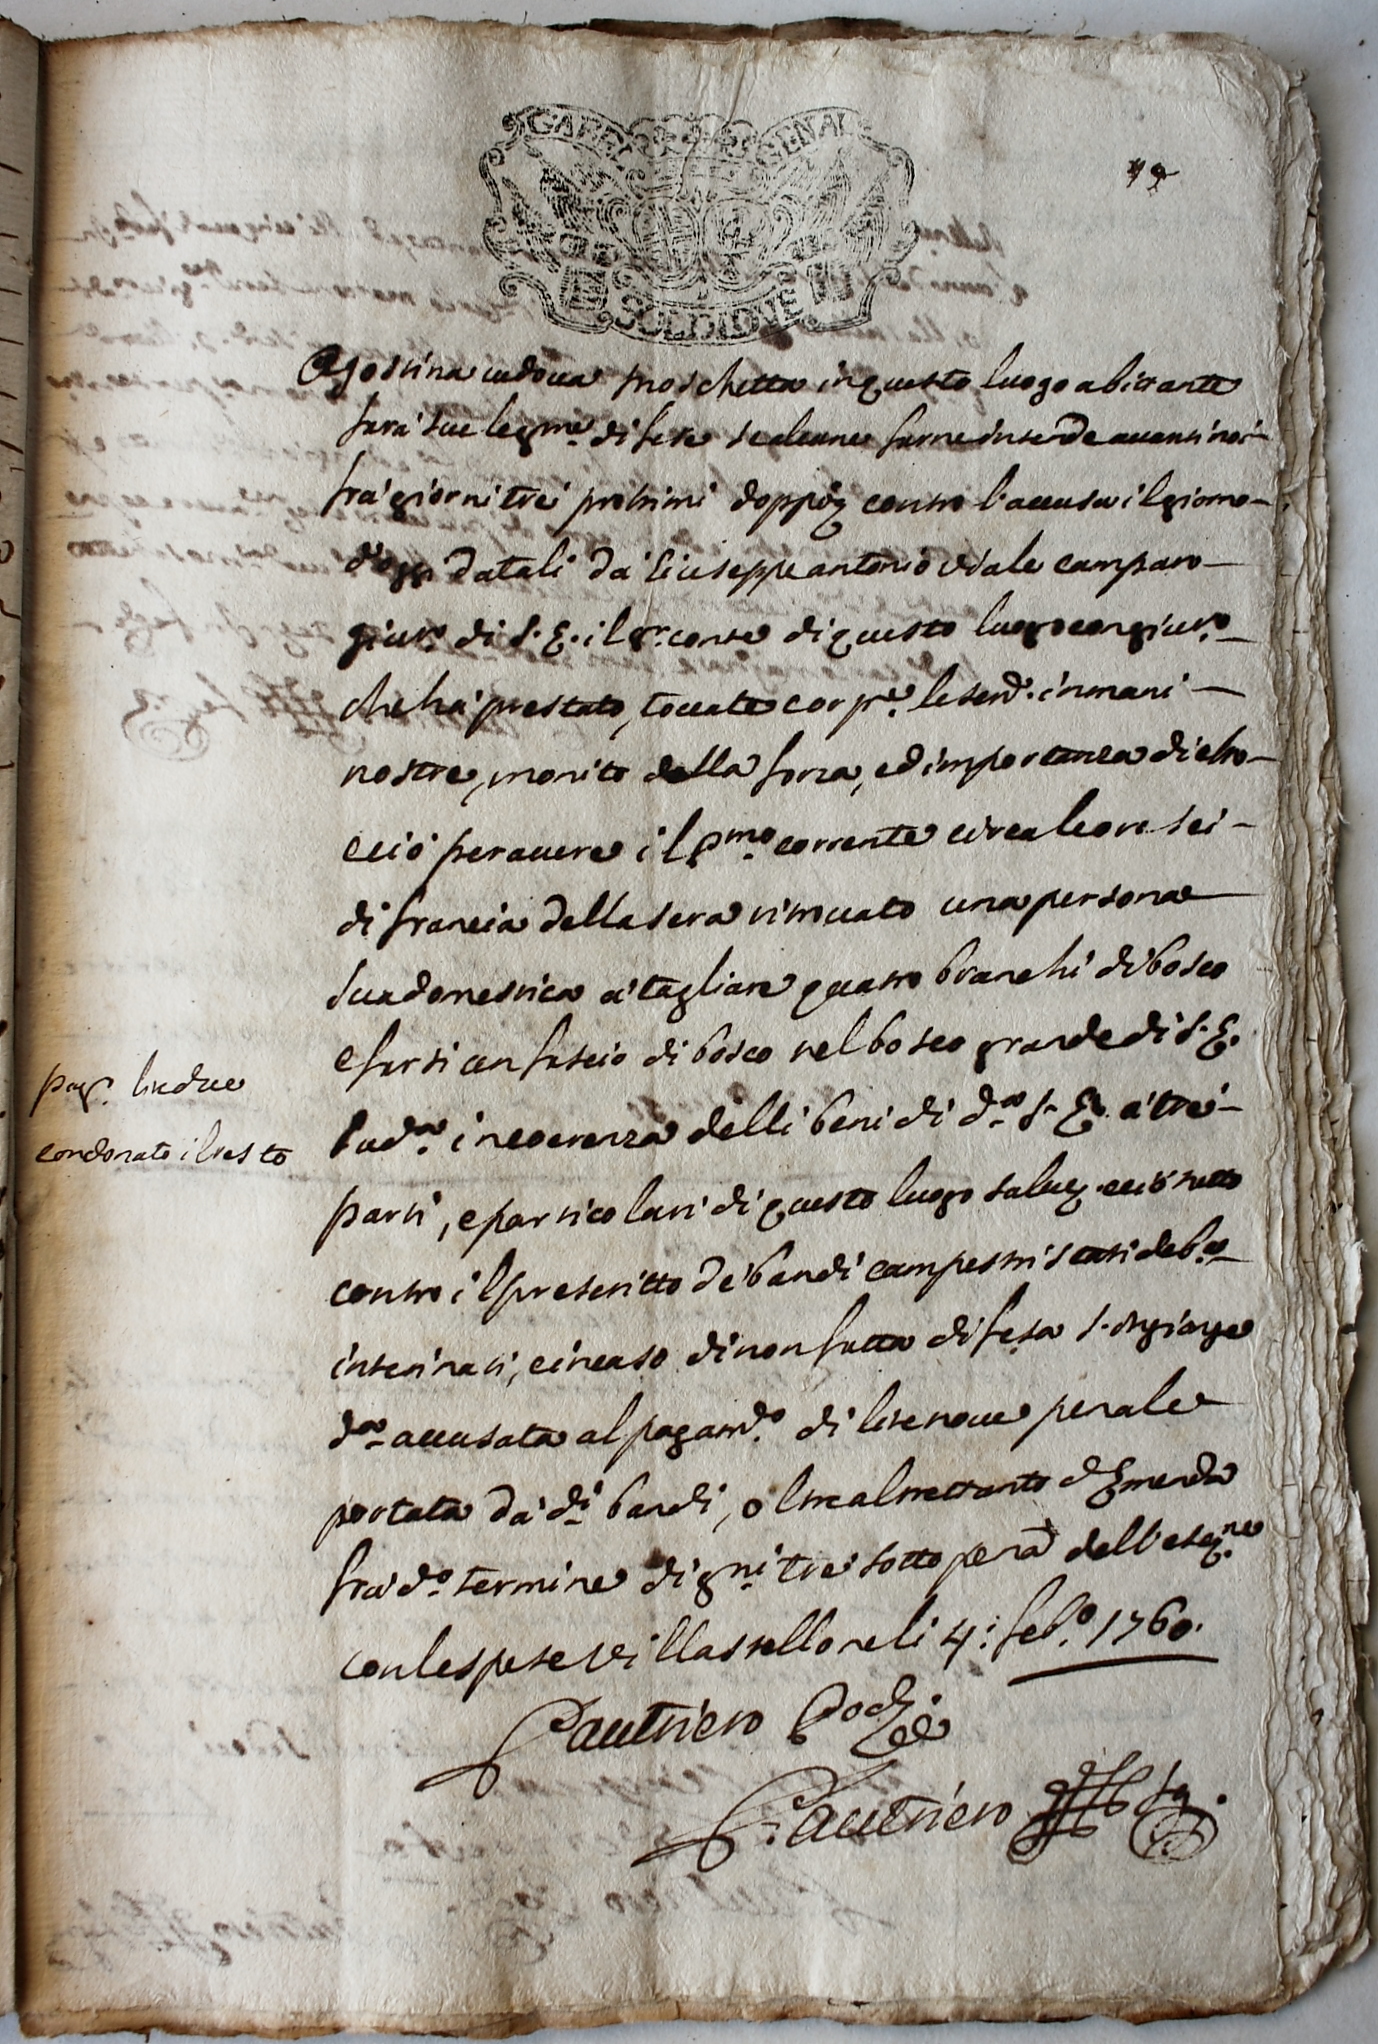 GABEL GENAL
SOLDI DVE
49
Agostina vedova Moschetta in questo luogo abittante
farà sue legme difese se alcune farne intende avanti noi
frà giorni trè prossimi doppo contro l'accusa il giorno
d'oggi datali dà Giuseppe Antonio Viale camparo
giurto di S. E. il Sr conte di questo luogo con giurto
che hà prestato, toccate corpte le scrd. in mani
nostre, monito della forza, ed importanza d'esso
e ciò per avere il pmo corrente circa le ore sei
di francia della sera rinviato una persona
sua domestica à tagliare quatro branchi di bosco
e farsi un fascio di bosco nel bosco grande di S. E.
sudo in coerenza delli beni di da S. E. à trè
parti, e particolari di questo luogo e ciò tutto
contro il prescritto dè bandi campestri stati debte
interinati, e in caso di non fatta difesa s'ingionge
da accusata al pagamto di lire nove penale
portata dà di bandi, oltre altrettanto d'emenda
frà do termine di gni trè sotto pena dell'esegne
con le spese Villastellone li 4: febo 1760.
Pautriero
Pautriero Seg.
pag. lire due
condonato il resto